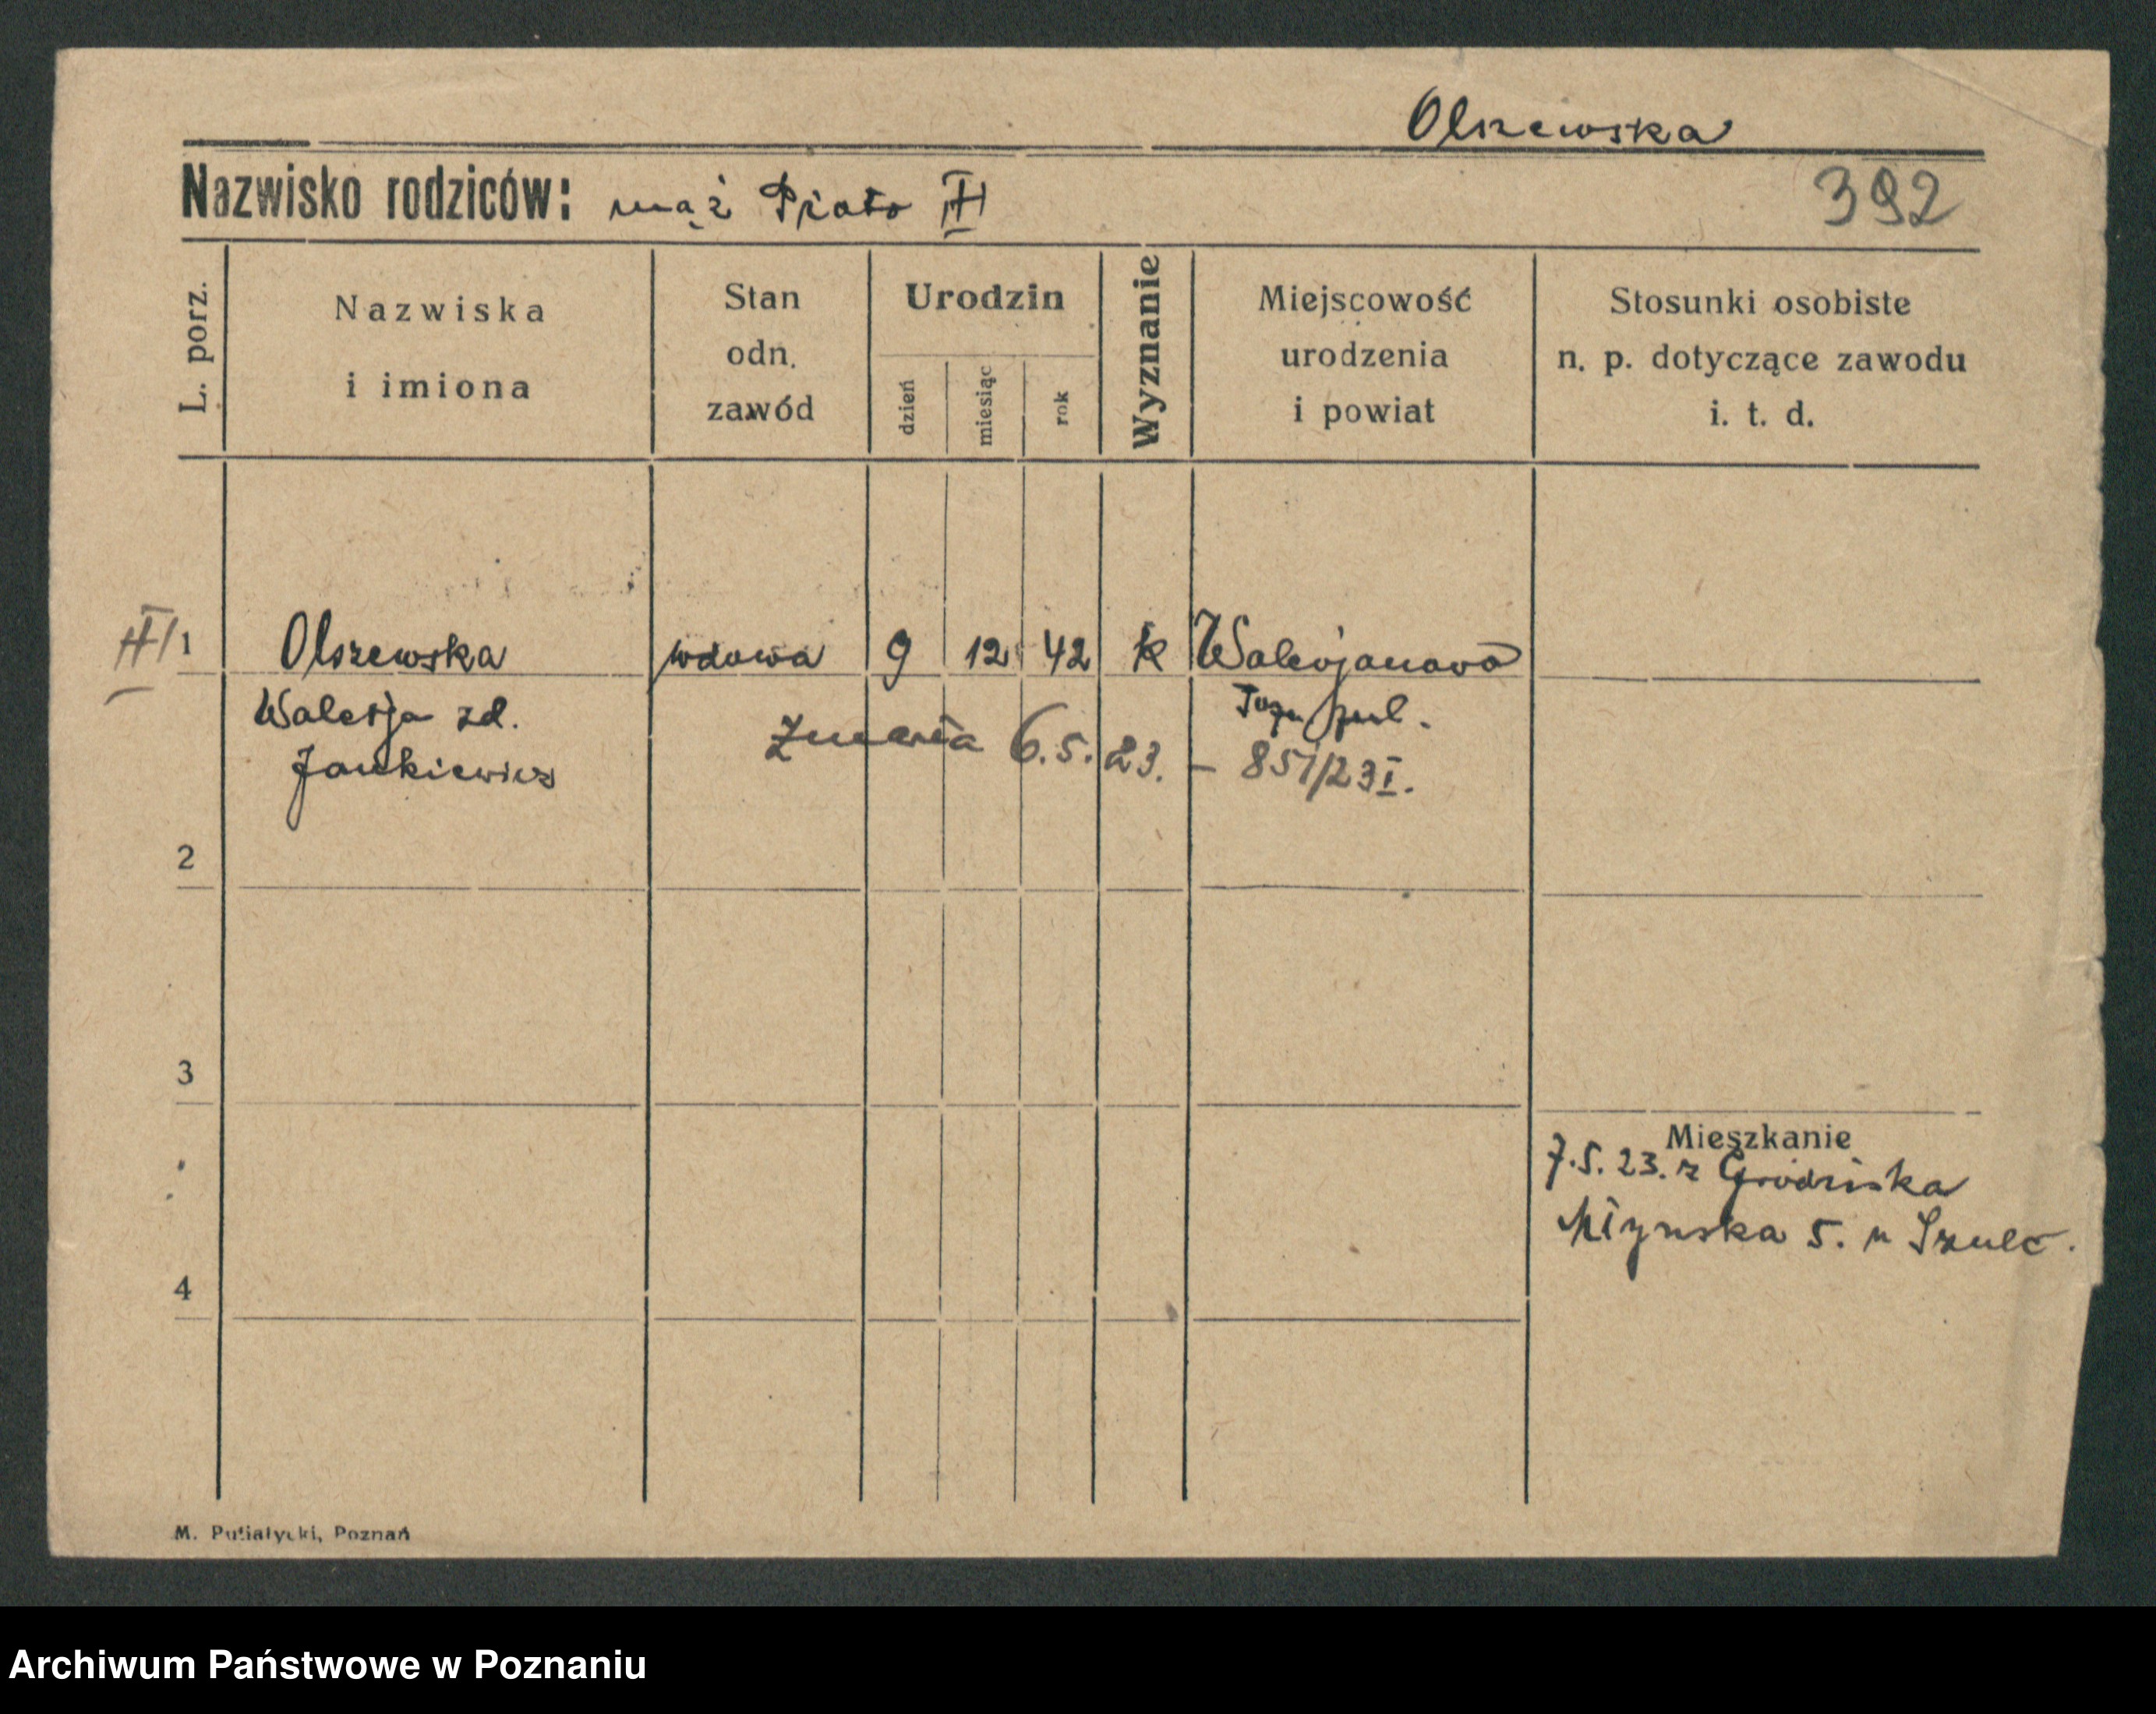 Olszewska
Nazwisko rodziców: mąż Piotr II
392
L. porz.
Nazwiska
i imiona
Stan
odn.
zawód
Urodzin
dzień
miesiąc
rok
Wyznanie
Miejscowość
urodzenia
i powiat
Stosunki osobiste
n. p. dotyczące zawodu
i. t. d.
II/1 Olszewska wdowa 9 12 42 k Walerjanowo
Walerja zd.
Jankiewicz
Zmarła 6.5.23. – 851/23 I.
2
3
Mieszkanie
7.5.23. z Grodziska
Młyńska 5. u Szulc.
4
M. Putiatycki, Poznań
Archiwum Państwowe w Poznaniu